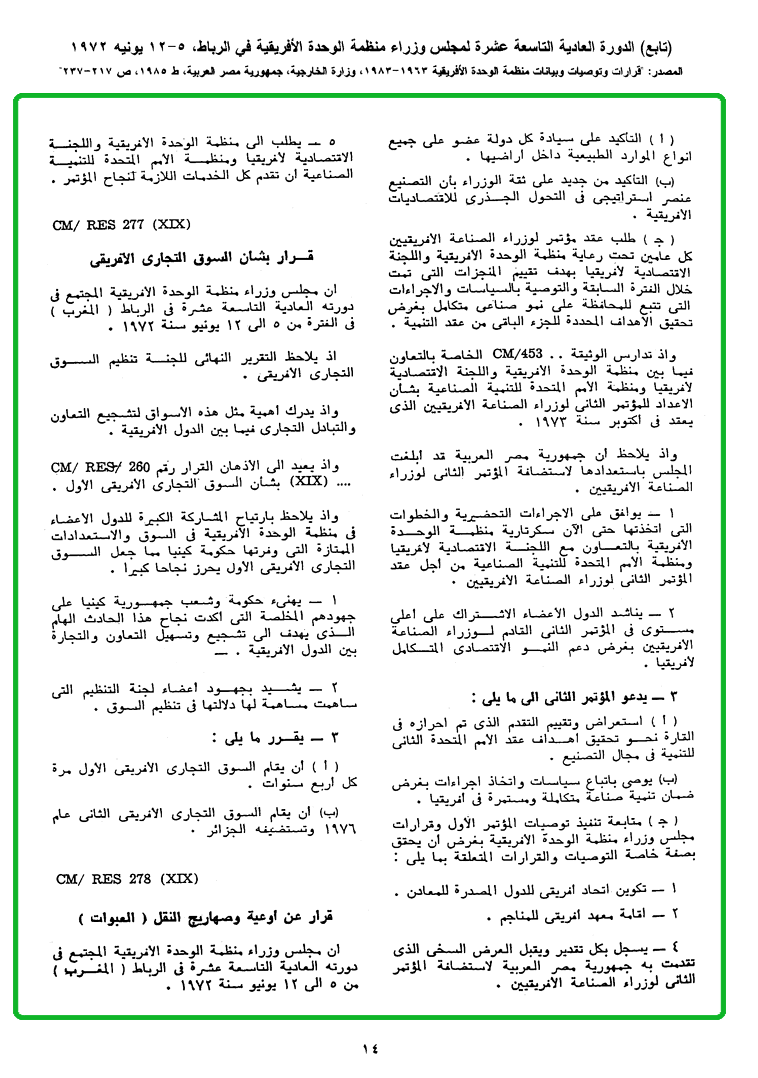 (تابع) الدورة العادية التاسعة عشرة لمجلس وزراء منظمة الوحدة الأفريقية في الرباط، ٥-١٢ يونيه ١٩٧٢
المصدر: "قرارات وتوصيات وبيانات منظمة الوحدة الأفريقية ١٩٦٣-١٩٨٣، وزارة الخارجية، جمهورية مصر العربية، ط ١٩٨٥، ص ٢١٧-٢٣٧"
( أ ) التأكيد على سيادة كل دولة عضو على جميع
انواع الموارد الطبيعية داخل أراضيها .
(ب) التأكيد من جديد على ثقة الوزراء بأن التصنيع
عنصر استراتيجى في التحول الجذرى للاقتصاديات
الأفريقية .
( ج ) طلب عقد مؤتمر لوزراء الصناعة الافريقيين
كل عامين تحت رعاية منظمة الوحدة الافريقية واللجنة
الاقتصادية لأفريقيا بهدف تقييم المنجزات التى تمت
خلال الفترة السابقة والتوصية بالسياسات والاجراءات
التى تتبع للمحافظة على نمو صناعى متكامل بغرض
تحقيق الأهداف المحددة للجزء الباقى من عقد التنمية .
واذ تدارس الوثيقة .. CM/453 الخاصة بالتعاون
فيما بين منظمة الوحدة الافريقية واللجنة الاقتصادية
لأفريقيا ومنظمة الأمم المتحدة للتنمية الصناعية بشأن
الاعداد للمؤتمر الثانى لوزراء الصناعة الافريقيين الذى
يعقد فى أكتوبر سنة ١٩٧٣ .
واذ يلاحظ أن جمهورية مصر العربية قد أبلغت
المجلس باستعدادها لاستضافة المؤتمر الثانى لوزراء
الصناعة الافريقيين .
١ — يوافق على الاجراءات التحضيرية والخطوات
التى اتخذتها حتى الآن سكرتارية منظمة الوحدة
الأفريقية بالتعاون مع اللجنة الاقتصادية لأفريقيا
ومنظمة الأمم المتحدة للتنمية الصناعية من أجل عقد
المؤتمر الثانى لوزراء الصناعة الافريقيين .
٢ — يناشد الدول الأعضاء الاشتراك على أعلى
مستوى فى المؤتمر الثانى القادم لوزراء الصناعة
الافريقيين بغرض دعم النمو الاقتصادى المتكامل
لأفريقيا .
٣ — يدعو المؤتمر الثانى الى ما يلى :
( أ ) استعراض وتقييم التقدم الذى تم احرازه فى
القارة نحو تحقيق أهداف عقد الأمم المتحدة الثانى
للتنمية فى مجال التصنيع .
(ب) يوصى باتباع سياسات واتخاذ اجراءات بغرض
ضمان تنمية صناعة متكاملة ومستمرة فى أفريقيا .
( ج ) متابعة تنفيذ توصيات المؤتمر الأول وقرارات
مجلس وزراء منظمة الوحدة الأفريقية بغرض أن يحقق
بصفة خاصة التوصيات والقرارات المتعلقة بما يلى :
١ — تكوين اتحاد أفريقى للدول المصدرة للمعادن .
٢ — اقامة معهد أفريقى للمناجم .
٤ — يسجل بكل تقدير ويقبل العرض السخى الذى
تقدمت به جمهورية مصر العربية لاستضافة المؤتمر
الثانى لوزراء الصناعة الأفريقيين .
٥ — يطلب الى منظمة الوحدة الافريقية واللجنة
الاقتصادية لأفريقيا ومنظمة الأمم المتحدة للتنمية
الصناعية أن تقدم كل الخدمات اللازمة لنجاح المؤتمر .
CM/ RES 277 (XIX)
قرار بشأن السوق التجارى الأفريقى
ان مجلس وزراء منظمة الوحدة الأفريقية المجتمع فى
دورته العادية التاسعة عشرة فى الرباط ( المغرب )
فى الفترة من ٥ الى ١٢ يونيو سنة ١٩٧٢ .
اذ يلاحظ التقرير النهائى للجنة تنظيم السوق
التجارى الأفريقى .
واذ يدرك أهمية مثل هذه الأسواق لتشجيع التعاون
والتبادل التجارى فيما بين الدول الأفريقية .
واذ يعيد الى الأذهان القرار رقم CM/ RES/ 260
.... (XIX) بشأن السوق التجارى الأفريقى الأول .
واذ يلاحظ بارتياح المشاركة الكبيرة للدول الأعضاء
فى منظمة الوحدة الأفريقية فى السوق والاستعدادات
الممتازة التى وفرتها حكومة كينيا مما جعل السوق
التجارى الأفريقى الأول يحرز نجاحا كبيرا .
١ — يهنىء حكومة وشعب جمهورية كينيا على
جهودهم المخلصة التى أكدت نجاح هذا الحادث الهام
الذى يهدف الى تشجيع وتسهيل التعاون والتجارة
بين الدول الأفريقية . —
٢ — يشيد بجهود أعضاء لجنة التنظيم التى
ساهمت مساهمة لها دلالتها فى تنظيم السوق .
٣ — يقرر ما يلى :
( أ ) أن يقام السوق التجارى الأفريقى الأول مرة
كل أربع سنوات .
(ب) أن يقام السوق التجارى الأفريقى الثانى عام
١٩٧٦ وتستضيفه الجزائر .
CM/ RES 278 (XIX)
قرار عن أوعية وصهاريج النقل ( العبوات )
ان مجلس وزراء منظمة الوحدة الأفريقية المجتمع فى
دورته العادية التاسعة عشرة فى الرباط ( المغرب )
من ٥ الى ١٢ يونيو سنة ١٩٧٢ .
١٤